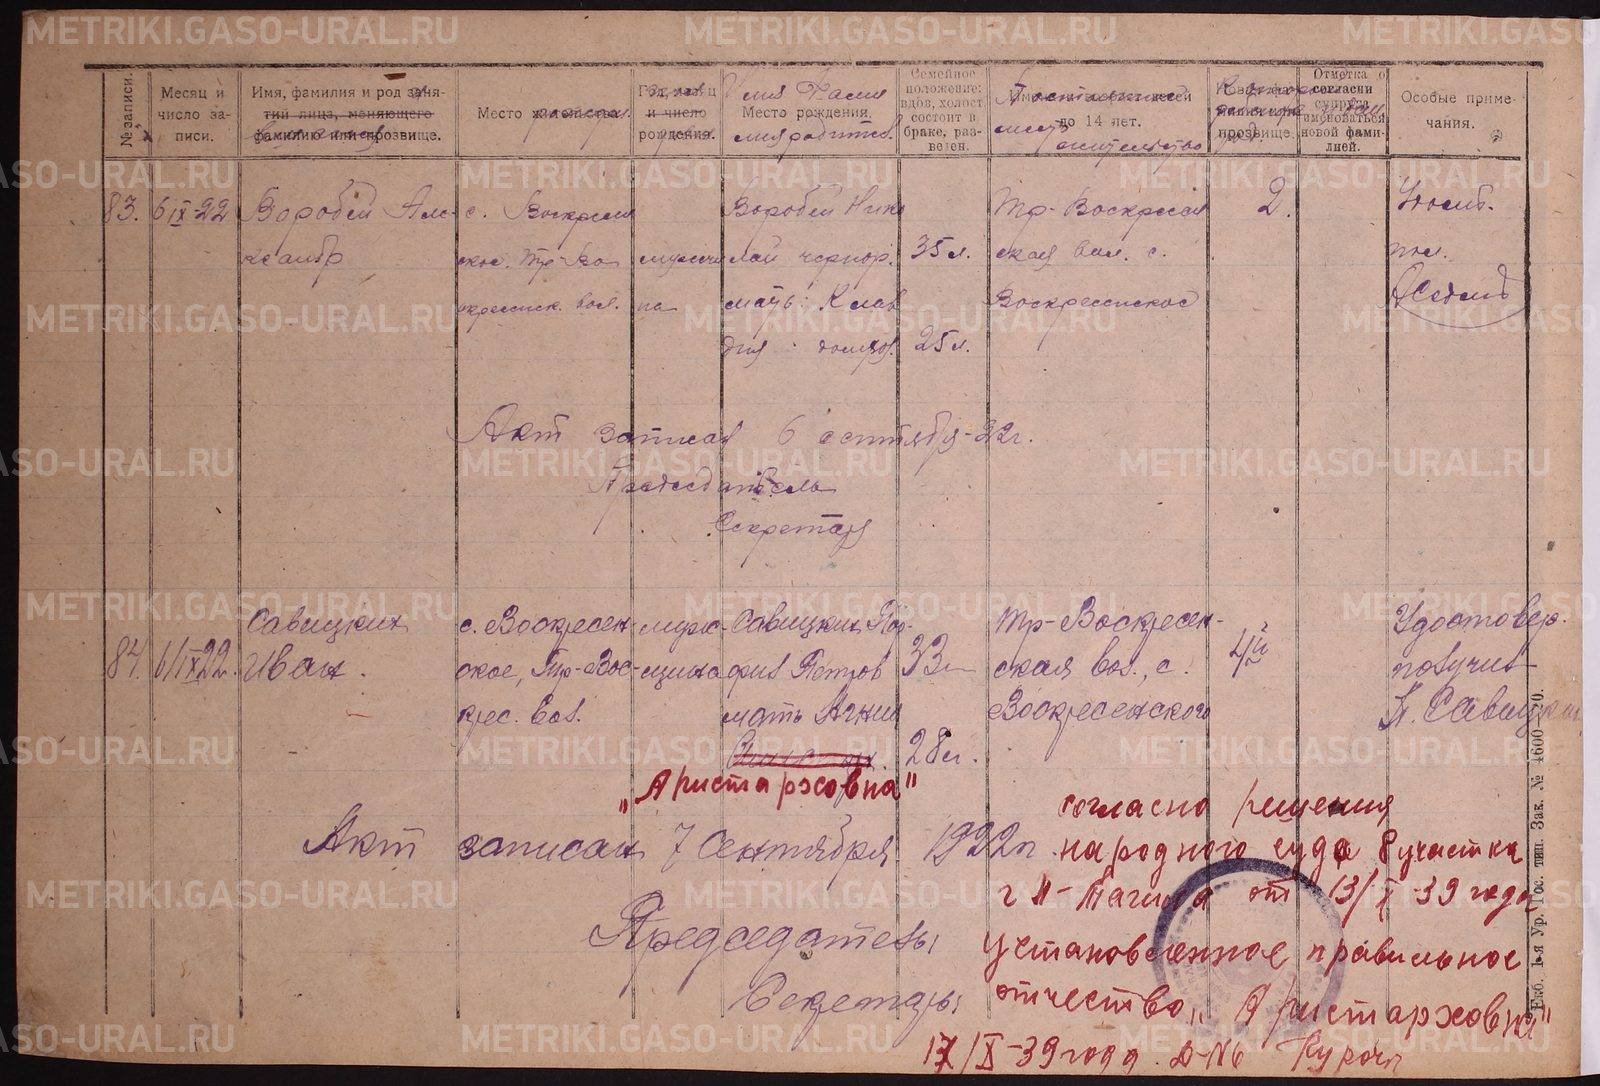 METRIKI.GASO-URAL.RU
№ записи.
Месяц и число записи.
Имя, фамилия и род занятий лица, меняющего фамилию или прозвище.
Место жительства
Год, месяц и число рождения.
Имя Фамил
Место рождения.
мия родител.
Семейное положение: вдов, холост, состоит в браке, разведен.
до 14 лет.
место жительство
прозвище.
Отметка о согласии супруга именоваться новой фамилией.
Особые примечания.
83.
6/IX-22
Воробей Александр
с. Воскресенское. Тр-Воскресенск. вол.
мужчина
Воробей Николай чернор.
мать: Клавдия
35 л.
25 л.
Тр-Воскресенская вол. с. Воскресенское
2.
Удост.
пол.
Акт записан 6 сентября-22г.
Председатель
Секретарь
84.
6/IX 22.
Савицких Иван.
с. Воскресенское, Тр-Воскрес. вол.
мужчина
Савицких Петров
мать Агния
"Аристарховна"
33
28 л.
Тр-Воскресенская вол., с. Воскресенского
4й
Удостовер.
получил
П. Савицких
Акт записан 7 Сентября 1922г.
Председатель
Секретарь
согласно решения
народного суда 8 участка
г Н-Тагила от 13/X-39 года
установленное правильное
отчество „Аристарховна"
17/X-39 года.
Екб. 1-я Ур. Гос. тип. Зак. № 4600-20.